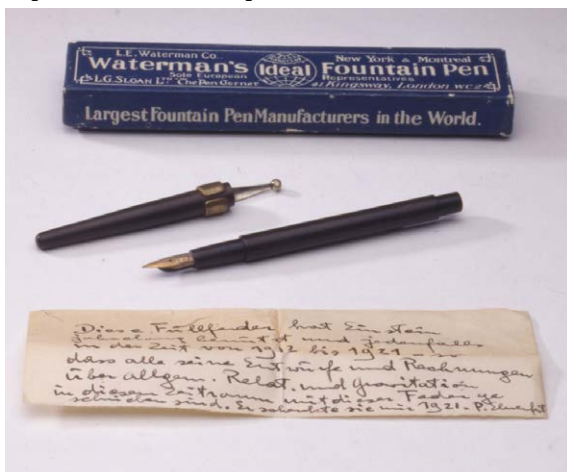 L.E. Waterman Co. New York & Montreal
Waterman's Ideal Fountain Pen
Sole European Representatives
L.G. SLOAN LTD The Pen Corner 41 Kingsway, London WC2
Largest Fountain Pen Manufacturers in the World.
Diese Füllfeder hat Einstein
jahrelang benützt und jedenfalls
in der Zeit von 1912 bis 1921
dass alle seine Entwürfe und Rechnungen
über allgem. Relat. und Gravitation
in diesem Zeitraum mit dieser Feder ge
schrieben sind. Er schenkte sie mir 1921. P. Ehrenfest